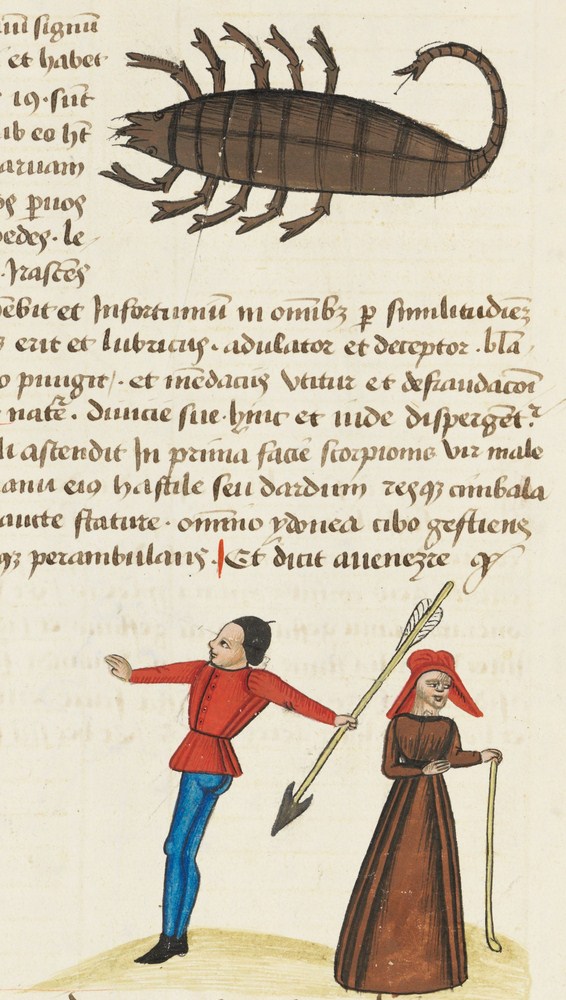 signū
et habet
19. sūt
ib eo hт̄
aruam
pedes. le
. Nascēs
ebit et Infortuniū in omībꝫ p similitudiēꝫ
erit et lubricus. adulator et deceptor. bla
o pungit/. et mēdacijs vtitur et defraudacōi
natē. diuicie sue. hinc et inde dispergēt.r
li astendit In prima facie scorpionis vir male
anu eiꝰ hastile seu dardum resqꝫ cimbala
aucte stature. omnino ydonea cibo gestiens
qꝫ perambulans. Et dicit auenezre ꝙ